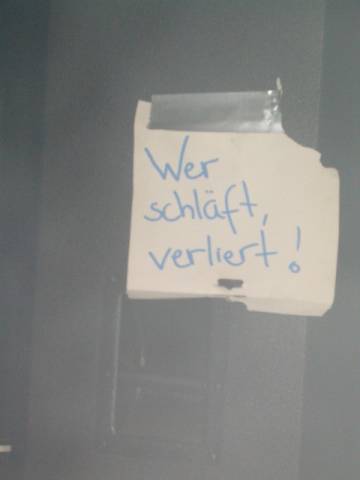 Wer
schläft,
verliert!